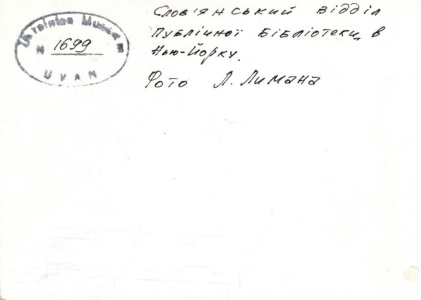 Ukrainian Museum
N 1699
UVAN
Слов'янський відділ
Публічної Бібліотеки в
Нью-Йорку.
Фото Л. Лимана